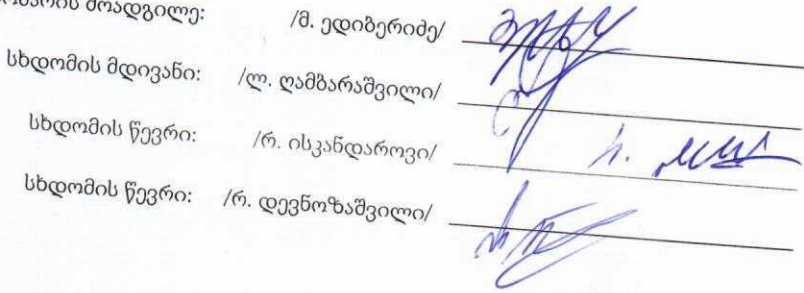 მოადგილე: /მ. ედიბერიძე/
სხდომის მდივანი: /ლ. ღამბარაშვილი/
სხდომის წევრი: /რ. ისკანდაროვი/
სხდომის წევრი: /რ. დევნოზაშვილი/